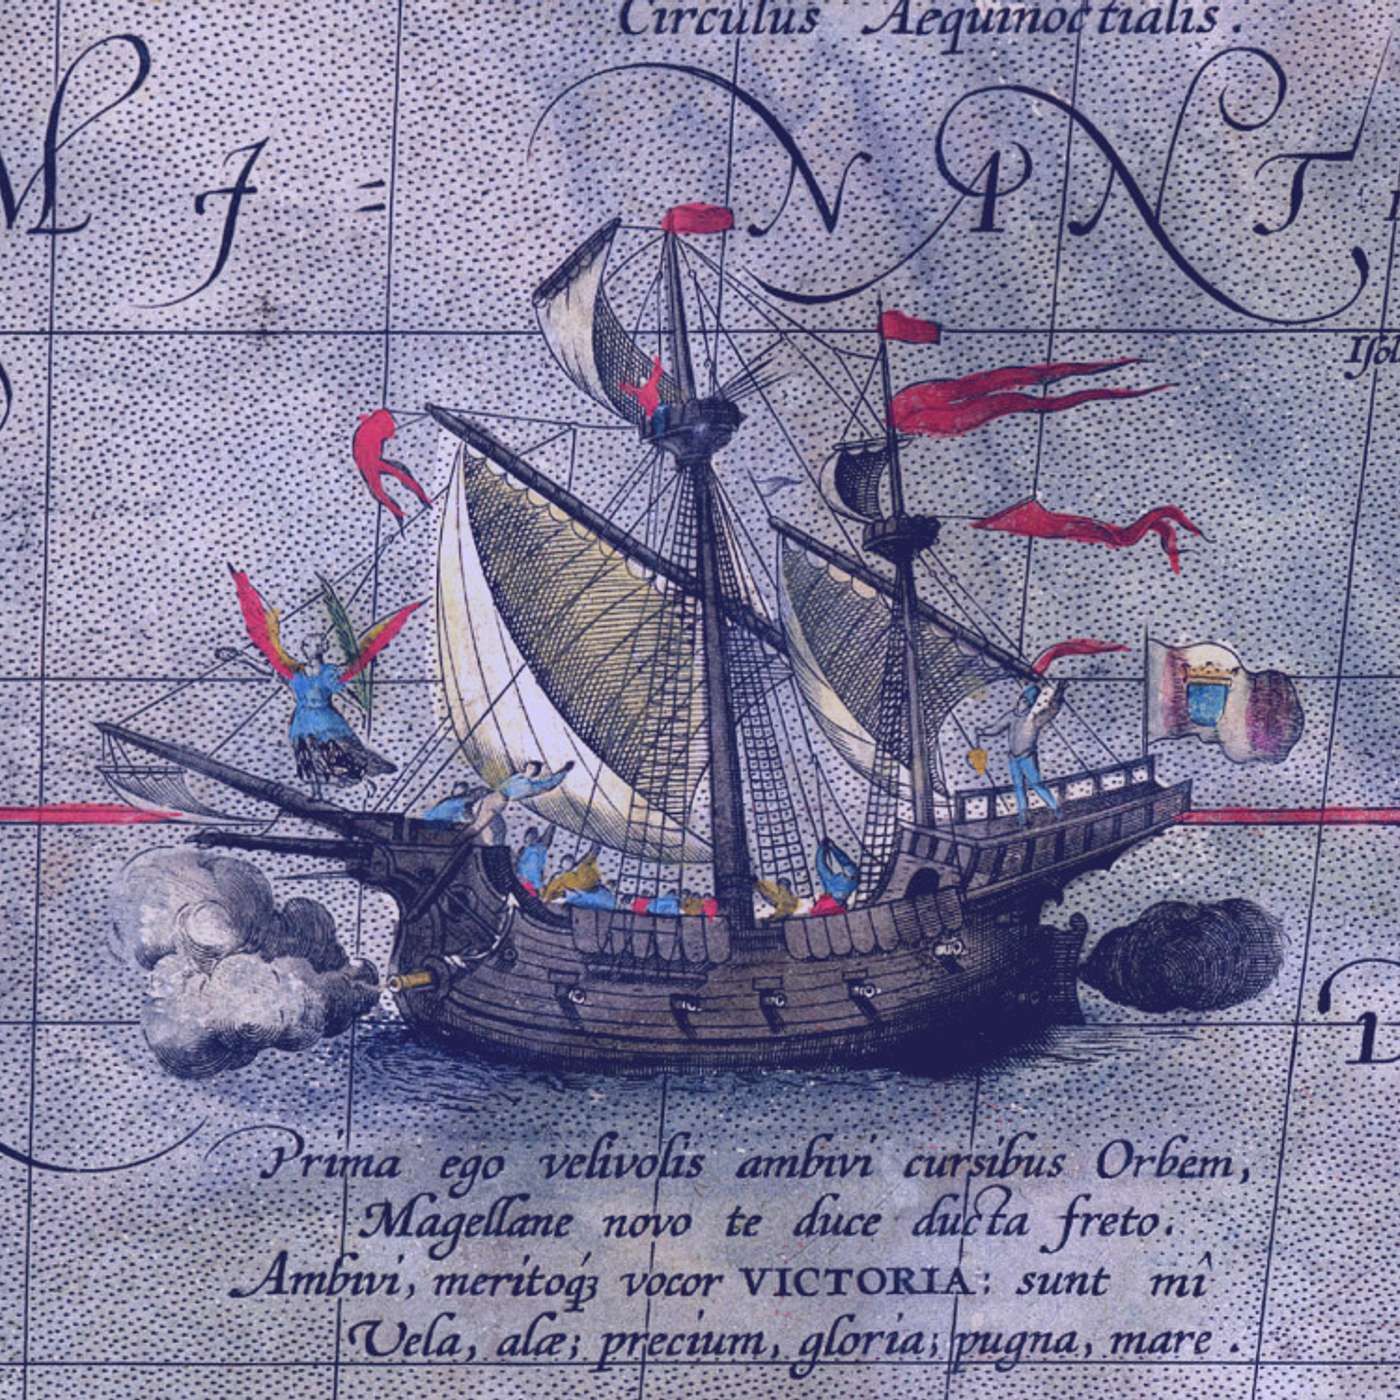 Circulus Aequinoctialis.
M I = N P N T
Prima ego velivolis ambivi cursibus Orbem,
Magellane novo te duce ducta freto.
Ambivi, meritoq́ꝫ vocor VICTORIA: sunt mî
Vela, alæ; precium, gloria; pugna, mare.